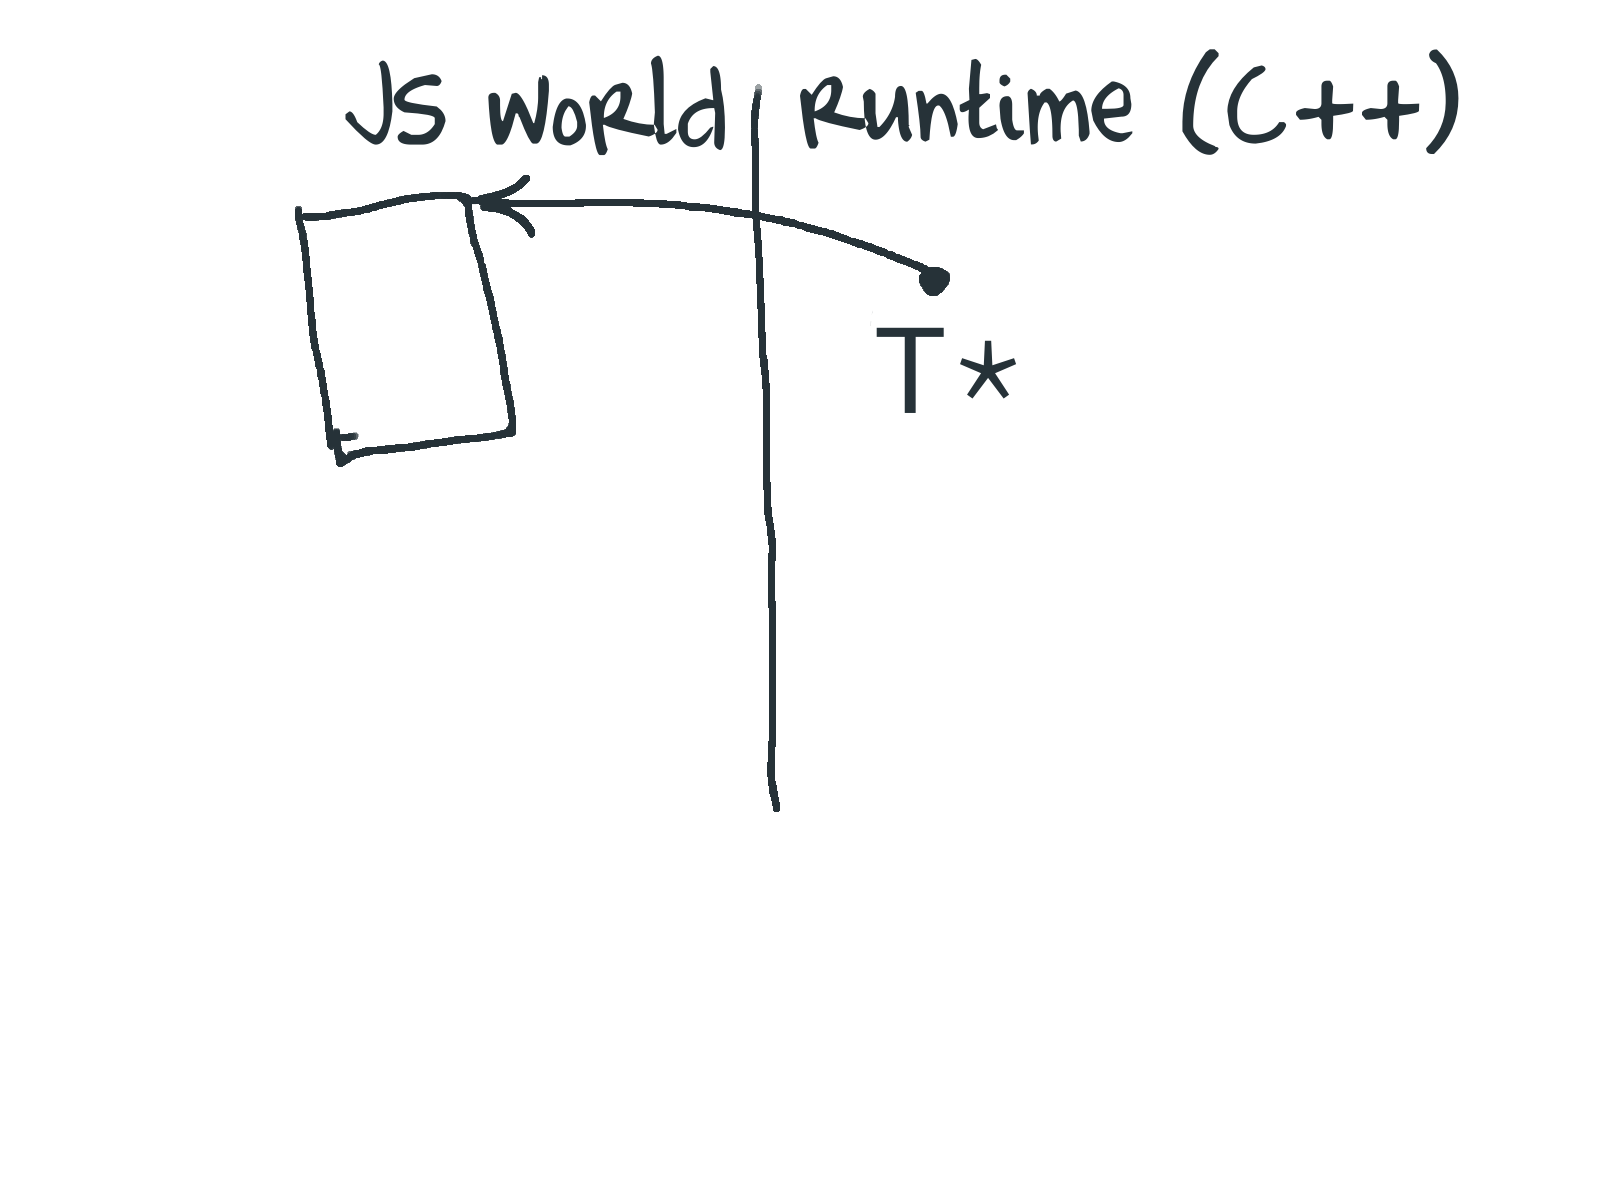 JS world Runtime (C++)
T*